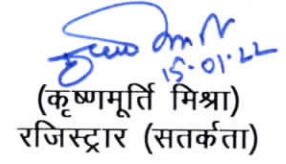 15.01.22
(कृष्णमूर्ति मिश्रा)
रजिस्ट्रार (सतर्कता)